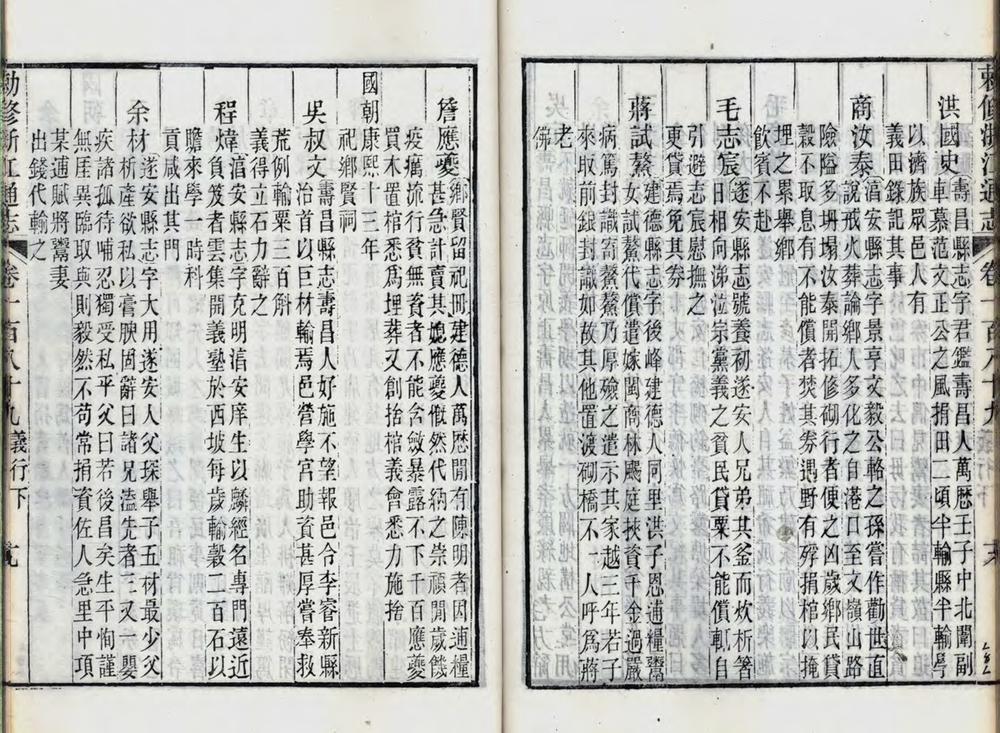 敕修浙江通志 卷一百八十九 義行下
洪國史 壽昌縣志字君鑑壽昌人萬歷壬子中北闈副
車慕范文正公之風捐田二頃半輸縣半輸學
以濟族眾邑人有
義田錄記其事
商汝泰 湻安縣志字景亨文毅公輅之孫嘗作勸世直
說戒火葬論鄉人多化之自港口至文嶺山路
險隘多坍塌汝泰開拓修砌行者便之凶歲鄉民貸
穀不取息有不能償者焚其券遇野有殍捐棺以掩
埋之累舉鄉
飲賓不赴
毛志宸 遂安縣志號養初遂安人兄弟其釜而炊析箸
日相向涕泣宗黨義之貧民貸粟不能償輒自
引避志宸慰撫之
更貸焉免其券
蔣試鰲 建德縣志字後峰建德人同里洪子恩逋糧鬻
女試鰲代償遣嫁閩商林颺庭挾資千金過嚴
病篤封識寄鰲鰲乃厚殮之遣示其家越三年若子
來取前銀封識如故其他置渡砌橋不一人呼爲蔣
老
佛
詹應夔 鄉賢留祀冊建德人萬歷間有陳明者因逋糧
甚急計賣其媳應夔慨然代納之崇禎間歲饑
疫癘流行貧無資者不能含斂暴露不下千百應夔
買木置棺悉爲埋葬又創捨棺義會悉力施捨
國朝康熙十三年
祀鄉賢祠
吳叔文 壽昌縣志壽昌人好施不望報邑令李睿新縣
治首以巨材輸焉邑營學宮助資甚厚嘗奉救
荒例輸粟三百斛
義得立石力辭之
程煒 湻安縣志字克明湻安庠生以麟經名專門遠近
負笈者雲集開義塾於西坡每歲輸穀二百石以
贍來學一時科
貢咸出其門
余材 遂安縣志字大用遂安人父琛舉子五材最少父
析產欲私以膏腴固辭曰諸兄溘先者三又一嬰
疾諸孤待哺忍獨受私乎父曰若後昌矣生平恂謹
無崖異臨取與則毅然不苟常捐資佐人急里中項
某逋賦將鬻妻
出錢代輸之
敕修浙江通志 卷一百八十九 義行下 十九